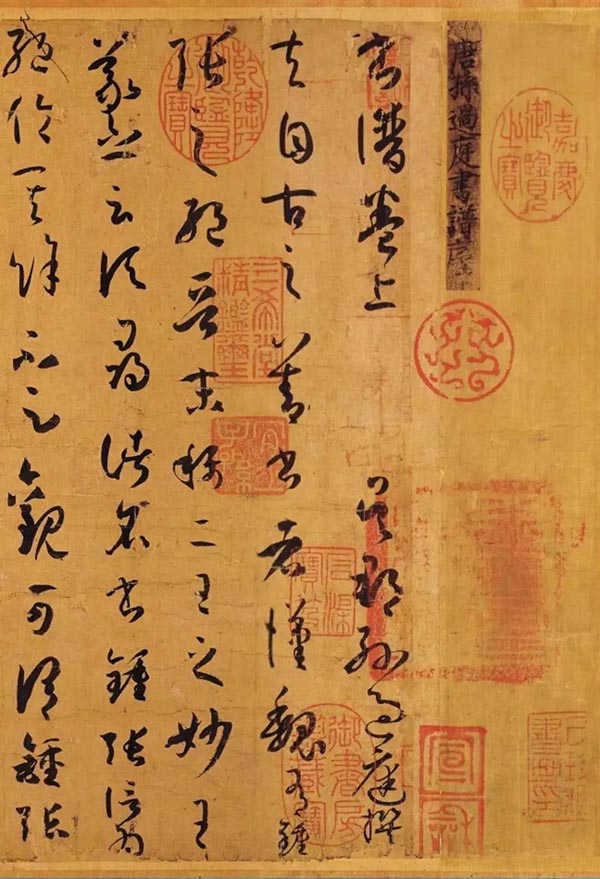 嘉慶御覽之寶
唐孫過庭書譜序
宣龢
書譜卷上
吳郡孫過庭撰
夫自古之善書者漢魏有鍾
張之絕晉末稱二王之妙王
羲之云頃尋諸名書鍾張信為
絕倫其餘不足觀可謂鍾張
乾隆御覽之寶
三希堂精鑑璽
宜子孫
石渠寶笈